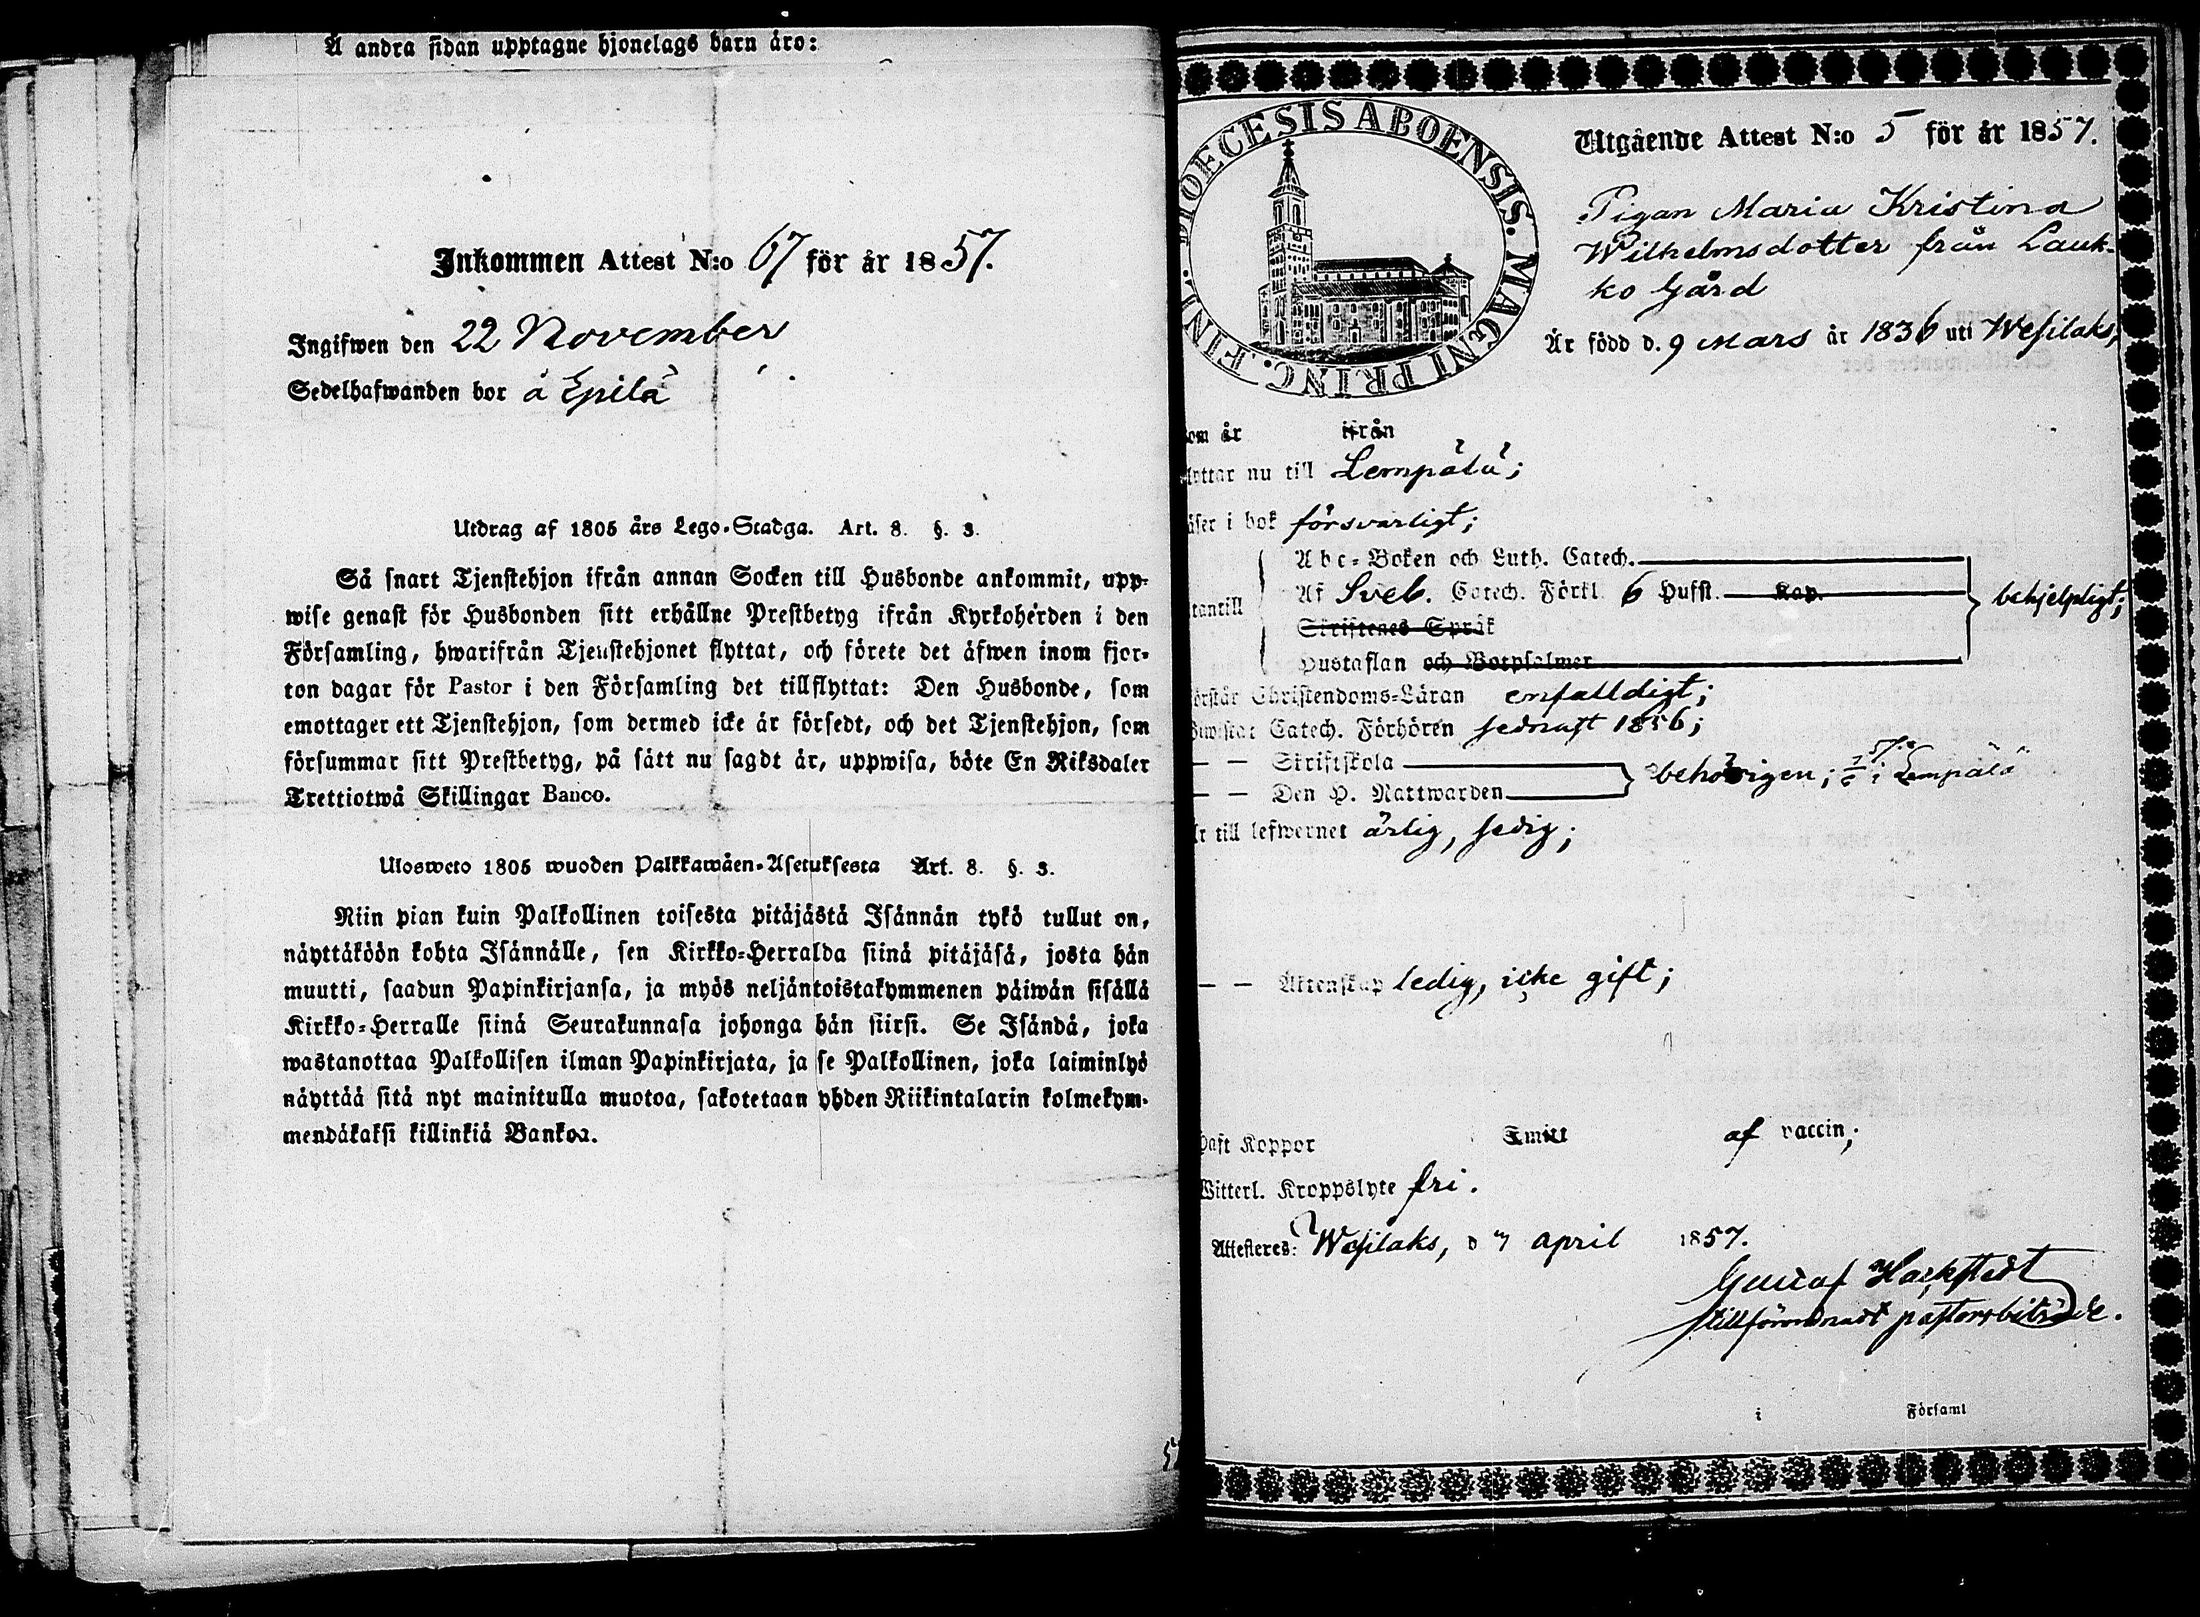 Å andra sidan upptagne hjonelags barn äro:
Inkommen Attest N:o 67 för år 1857.
Ingifwen den 22 November
Sedelhafwanden bor å Epilä
Utdrag af 1805 års Lego-Stadga. Art. 8. §. 3.
Så snart Tjenstehjon ifrån annan Socken till Husbonde ankommit, upp-
wise genast för Husbonden sitt erhållne Prestbetyg ifrån Kyrkoherden i den
Församling, hwarifrån Tjenstehjonet flyttat, och förete det äfwen inom fjor-
ton dagar för Pastor i den Församling det tillflyttat: Den Husbonde, som
emottager ett Tjenstehjon, som dermed icke är försedt, och det Tjenstehjon, som
försummar sitt Prestbetyg, på sätt nu sagdt är, uppwisa, böte En Riksdaler
Trettiotwå Skillingar Banco.
Ulosweto 1805 wuoden Palkkawäen-Asetuksesta Art. 8. §. 3.
Niin pian kuin Palkollinen toisesta pitäjästä Isännän tykö tullut on,
näyttäköön kohta Isännälle, sen Kirkko-Herralda siinä pitäjäsä, josta hän
muutti, saadun Papinkirjansa, ja myös neljäntoistakymmenen päiwän sisällä
Kirkko-Herralle siinä Seurakunnasa johonga hän siirsi. Se Isändä, joka
wastanottaa Palkollisen ilman Papinkirjata, ja se Palkollinen, joka laiminlyö
näyttää sitä nyt mainitulla muotoa, sakotetaan yhden Riikintalarin kolmekym-
mendäkaksi killinkiä Bankoa.
DIOECESIS ABOENSIS. MAGNI PRINC. FINL.
Utgående Attest N:o 5 för år 1857.
Pigan Maria Kristina
Wilhelmsdotter från Lauk-
ko Gård
Är född d. 9 Mars år 1836 uti Wesilaks,
om år ifrån
lyttar nu till Lempälä;
äser i bok försvarligt;
Abc-Boken och Luth. Catech.
utantill Af Sveb. Catech. Förkl. 6 Hufst. Kap. behjelpligt;
Skriftenes Språk
Hustaflan och Botpsalmer
örstår Christendoms-Läran enfalldigt;
Biwistat Catech. Förhören sednast 1856;
— — Skriftskola
behörigen; i Lempälä
— — Den H. Nattwarden
r till lefwernet ärlig, sedig;
— — Äktenskap ledig, icke gift;
Haft Koppor Smitt af vaccin;
Witterl. Kroppslyte fri.
Attesteres: Wesilaks, d 7 April 1857.
Gustaf Hackstedt
tillförordnadt pastorsbiträde.
i Församl